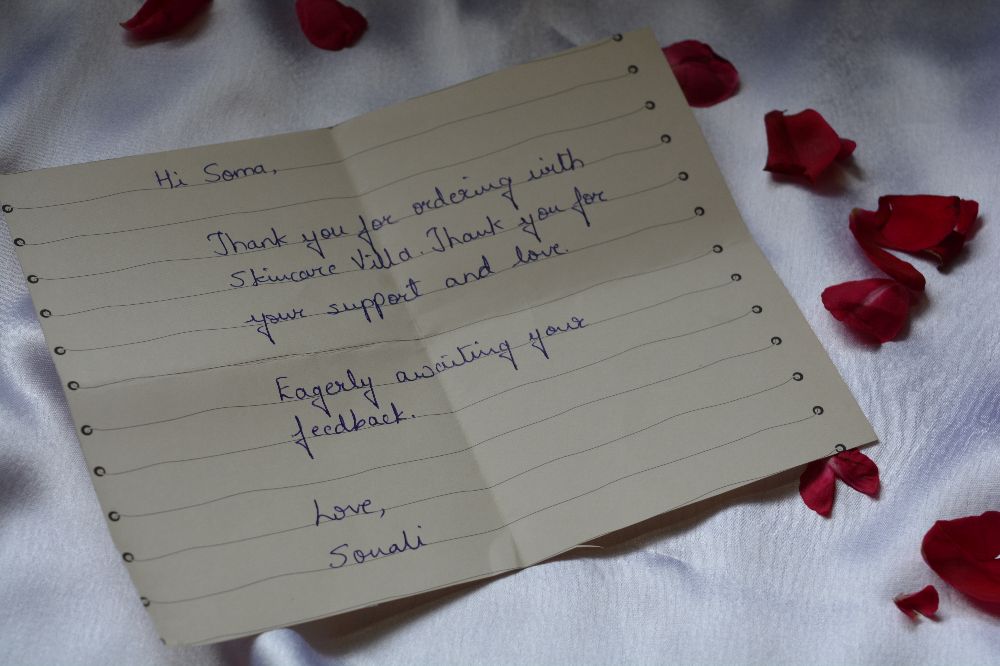 Hi Soma,
Thank you for ordering with
Skincare Villa. Thank you for
your support and love.
Eagerly awaiting your
feedback.
Love,
Sonali